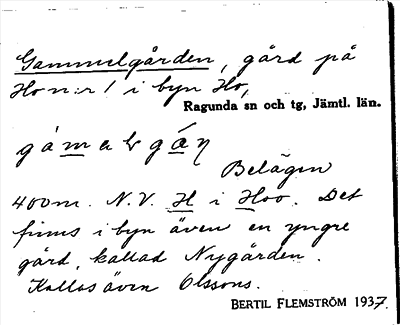 Gammelgården, gård på
Ho n:r 1 i byn Ho,
Ragunda sn och tg, Jämtl. län.
gámalgáɳ
Belägen
400 m. N.V. H i Hoo. Det
finns i byn även en yngre
gård, kallad Nygården.
Kallas även Olssons.
BERTIL FLEMSTRÖM 1937.